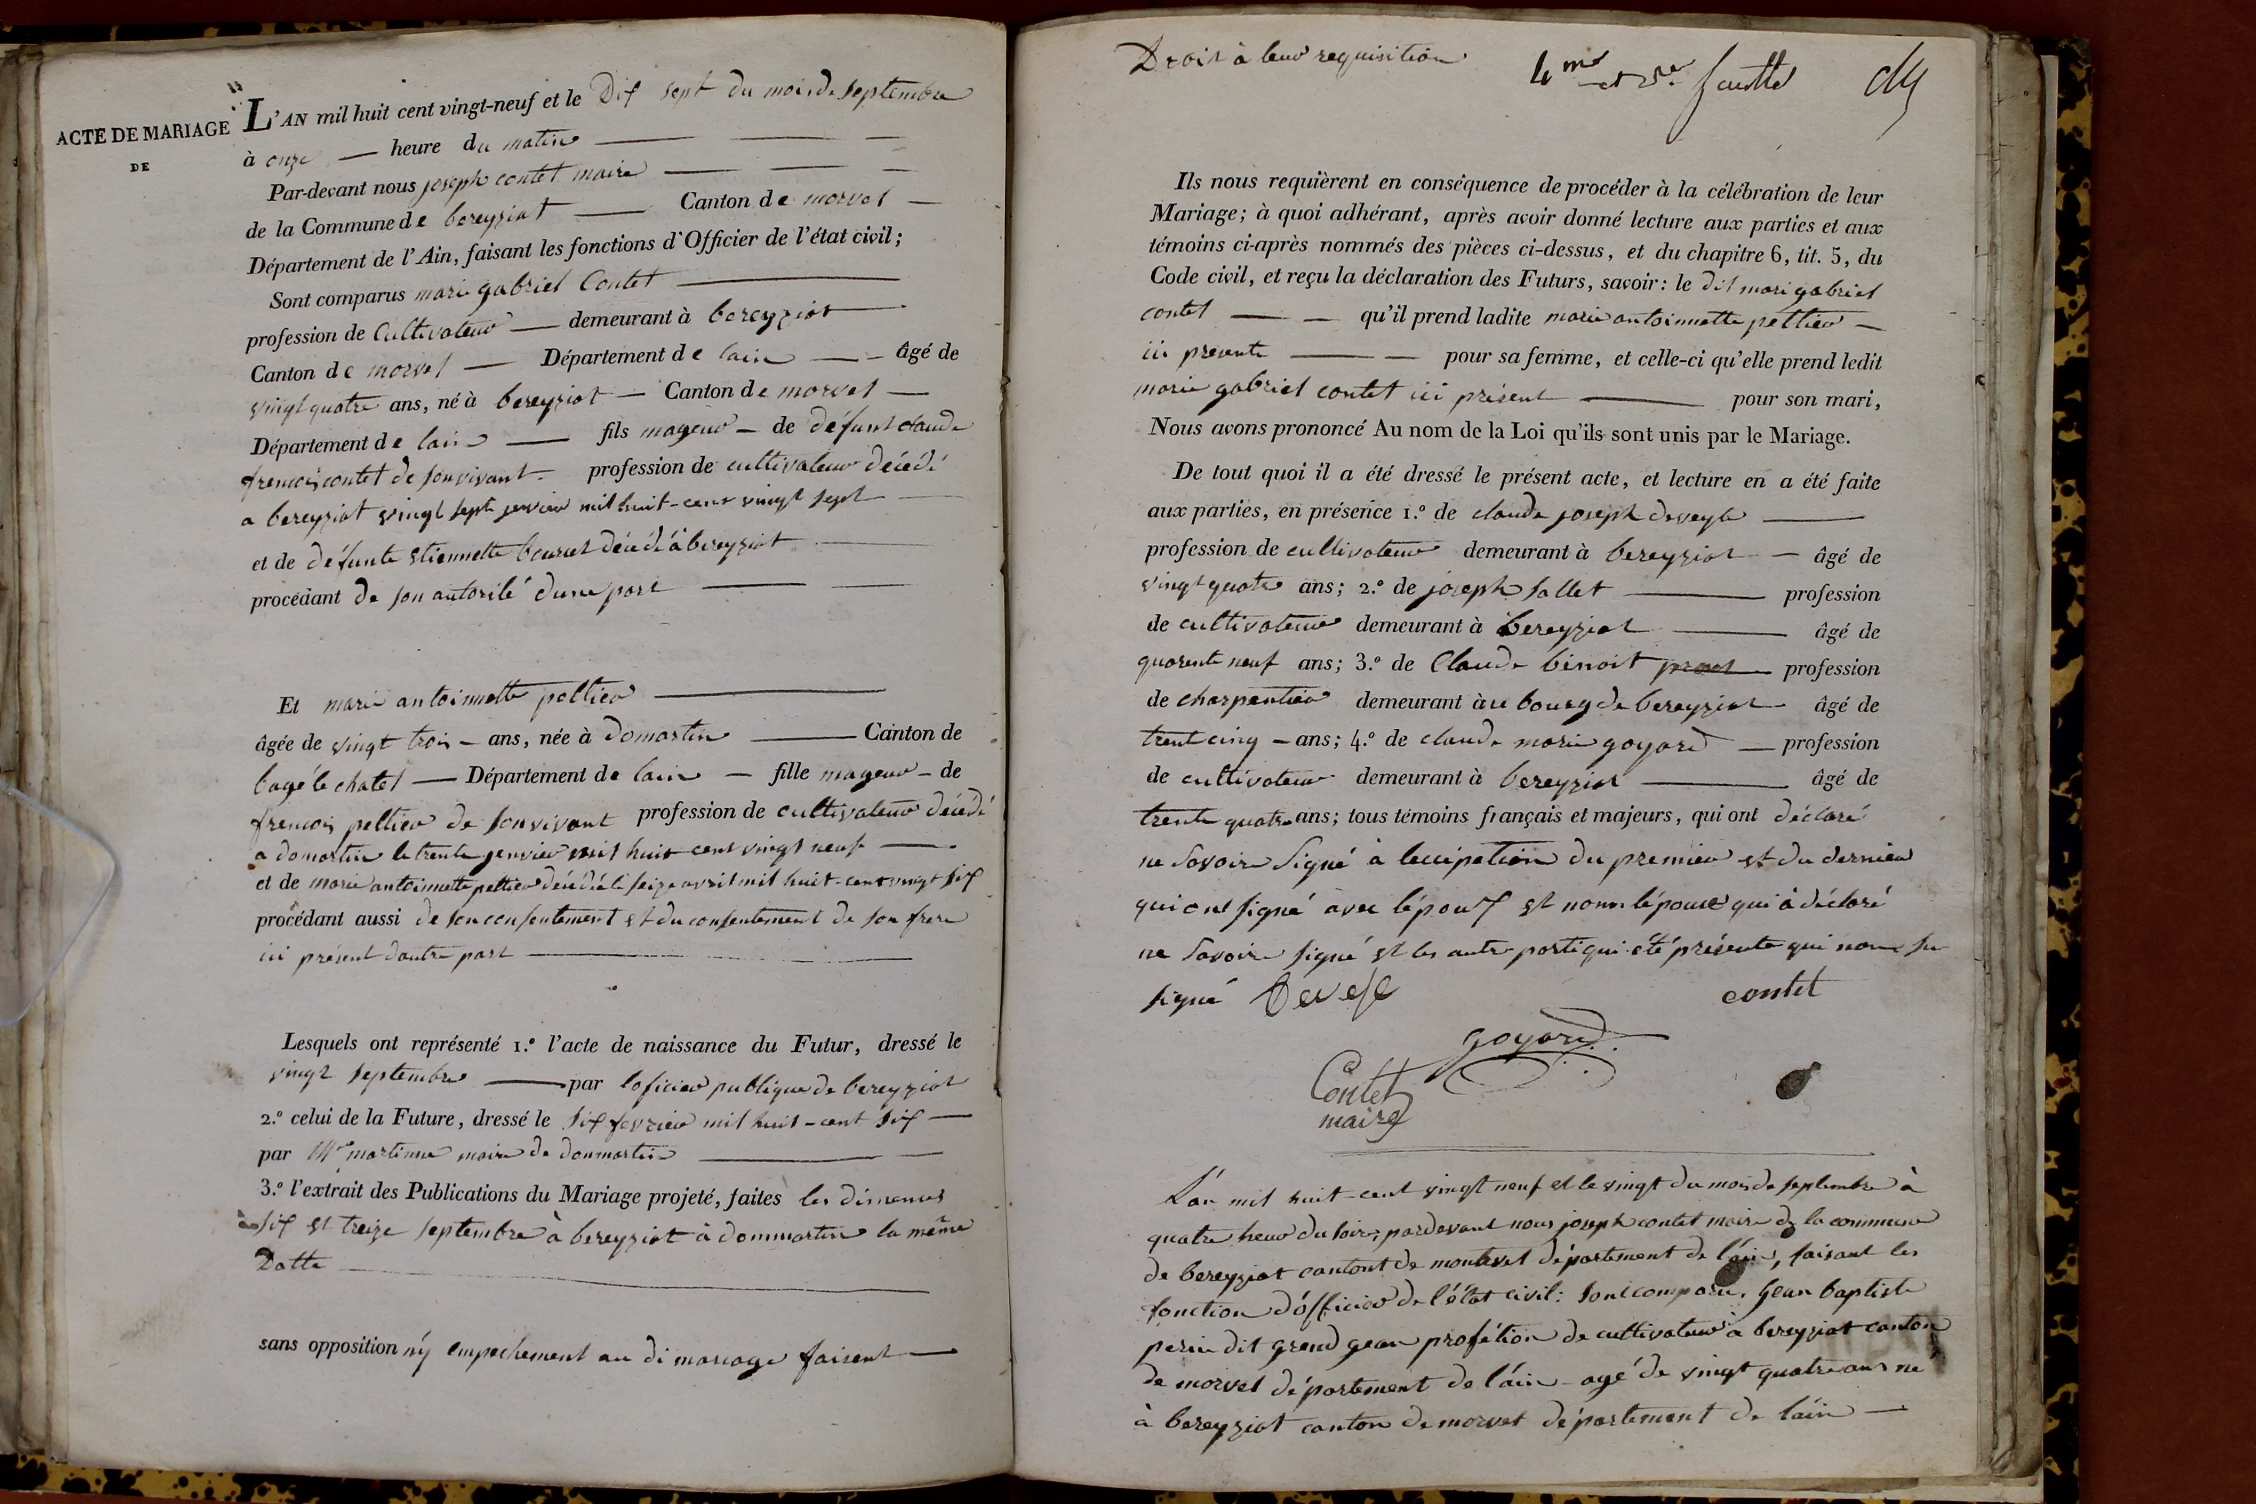 ACTE DE MARIAGE
DE
L'AN mil huit cent vingt-neuf et le Dix sept du mois de septembre
à onze — heure du matin
Par-devant nous joseph contet maire
de la Commune de bereyziat — Canton de morvel —
Département de l'Ain, faisant les fonctions d'Officier de l'état civil;
Sont comparus marie gabriel Contet
profession de Cultivateur — demeurant à bereyziat
Canton de morvel — Département de lain — âgé de
vingt quatre ans, né à bereyziat — Canton de morvel —
Département de lain — fils mageur — de défunt claude
francois contet de son vivant — profession de cultivateur décédé
a bereyziat vingt sept jenvier mil huit-cent vingt sept
et de défunte etiennette décédé à bereyziat
procédant de son autorité dune part
Et marie antoinnette peltier
âgée de vingt trois — ans, née à domartin — Canton de
bagé le chatel — Département de lain — fille mageur — de
frencois peltier de son vivant profession de cultivateur décédé
a domartin le trente jenvier mil huit cent vingt neuf
et de marie antoinnette peltier décédé le seize avril mil huit-cent vingt six
procédant aussi de son consentement et du consentement de son frere
ici présent dautre part
Lesquels ont représenté 1.º l'acte de naissance du Futur, dressé le
vingt septembre — par loficier publique de bereyziat
2.º celui de la Future, dressé le six fevrier mil huit-cent six —
par Mr martinne maire de donmartin
3.º l'extrait des Publications du Mariage projeté, faites les dimenches
six et treize septembre à bereyziat à dommartin la même
Datte
sans opposition ny empechement au di mariage faisent
Droit à leur requisition
4me et 5e feuille
Ils nous requièrent en conséquence de procéder à la célébration de leur
Mariage; à quoi adhérant, après avoir donné lecture aux parties et aux
témoins ci-après nommés des pièces ci-dessus, et du chapitre 6, tit. 5, du
Code civil, et reçu la déclaration des Futurs, savoir: le dit mari gabriel
contet — qu'il prend ladite marie antoinnette peltier —
ici presente — pour sa femme, et celle-ci qu'elle prend ledit
marie gabriel contet ici présent — pour son mari,
Nous avons prononcé Au nom de la Loi qu'ils sont unis par le Mariage.
De tout quoi il a été dressé le présent acte, et lecture en a été faite
aux parties, en présence 1.º de claude joseph deveyle
profession de cultivateur demeurant à bereyziat — âgé de
vingt quatre ans; 2.º de joseph sallet — profession
de cultivateur demeurant à bereyziat — âgé de
quarente neuf ans; 3.º de Claude binoit profession
de charpentier demeurant à u bourg de bereyziat âgé de
trent cinq — ans; 4.º de claude marie goyard — profession
de cultivateur demeurant à bereyziat — âgé de
trente quatre ans; tous témoins français et majeurs, qui ont déclaré
ne savoir signé à lecception du premier et du dernier
qui ont signé avec lépoux et nonn lépouse qui à déclaré
ne savoir signé et les autre parti qui été présente qui nonn su
signé Devele contet
goyard
Contet
maire
L'an mil huit-cent vingt neuf et le vingt du mois de septembre à
quatre heur du soir, pardevant nous joseph contet maire de la commune
de bereyziat cantont de montrevel département de l'ain, faisant les
fonction d'officier de l'état civil: sont comparu, gean baptiste
perin dit grend gean profétion de cultivateur à bereyziat canton
de morvel département de l'ain — agé de vingt quatre ans ne
à bereyziat canton de morvel département de lain —